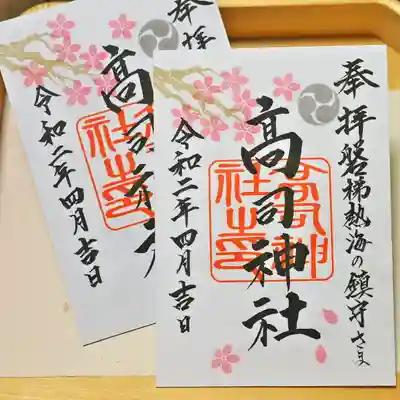 奉拝 磐梯熱海の鎮守さま
髙司神社
令和二年四月吉日
髙司神社之印
奉拝
髙司神社
令和二年四月吉日